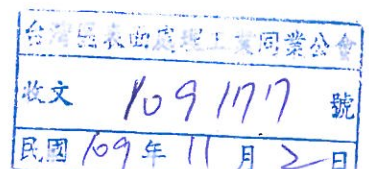 台灣區表面處理工業同業公會
收文 109177 號
民國 109 年 11 月 2 日